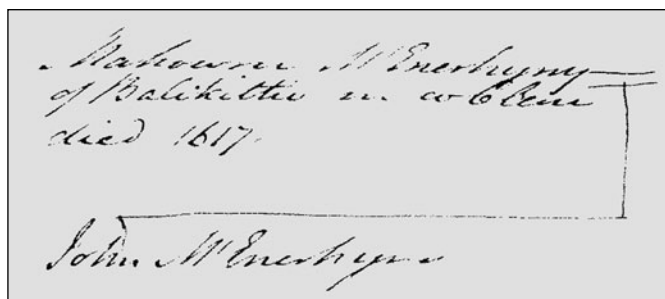 Mahowne McEnerhyny
of Balikittie in co Clare
died 1617.
John McEnerhyne